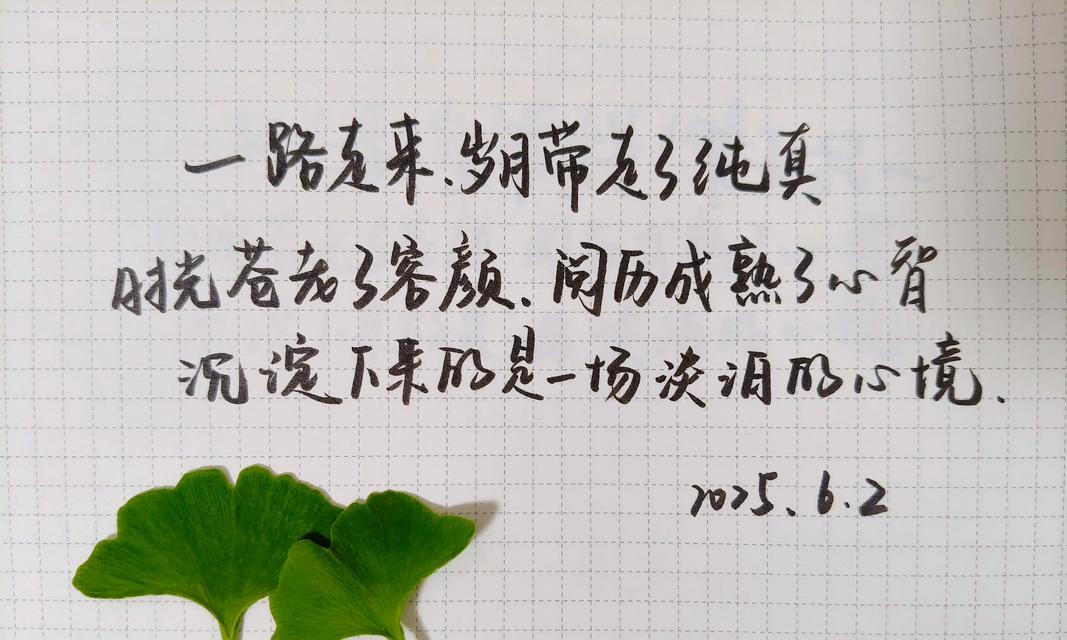 一路走来、岁月带走了纯真
时光苍老了容颜、阅历成熟了心智
沉淀下来的是一场淡泊的心境.
2025.6.2